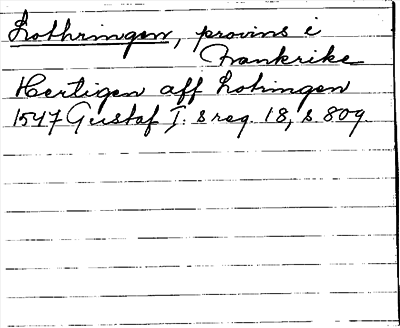 Lothringen, provins i
Frankrike
Hertigen aff Lotringen
1547 Gustaf I:s reg. 18, s. 809.